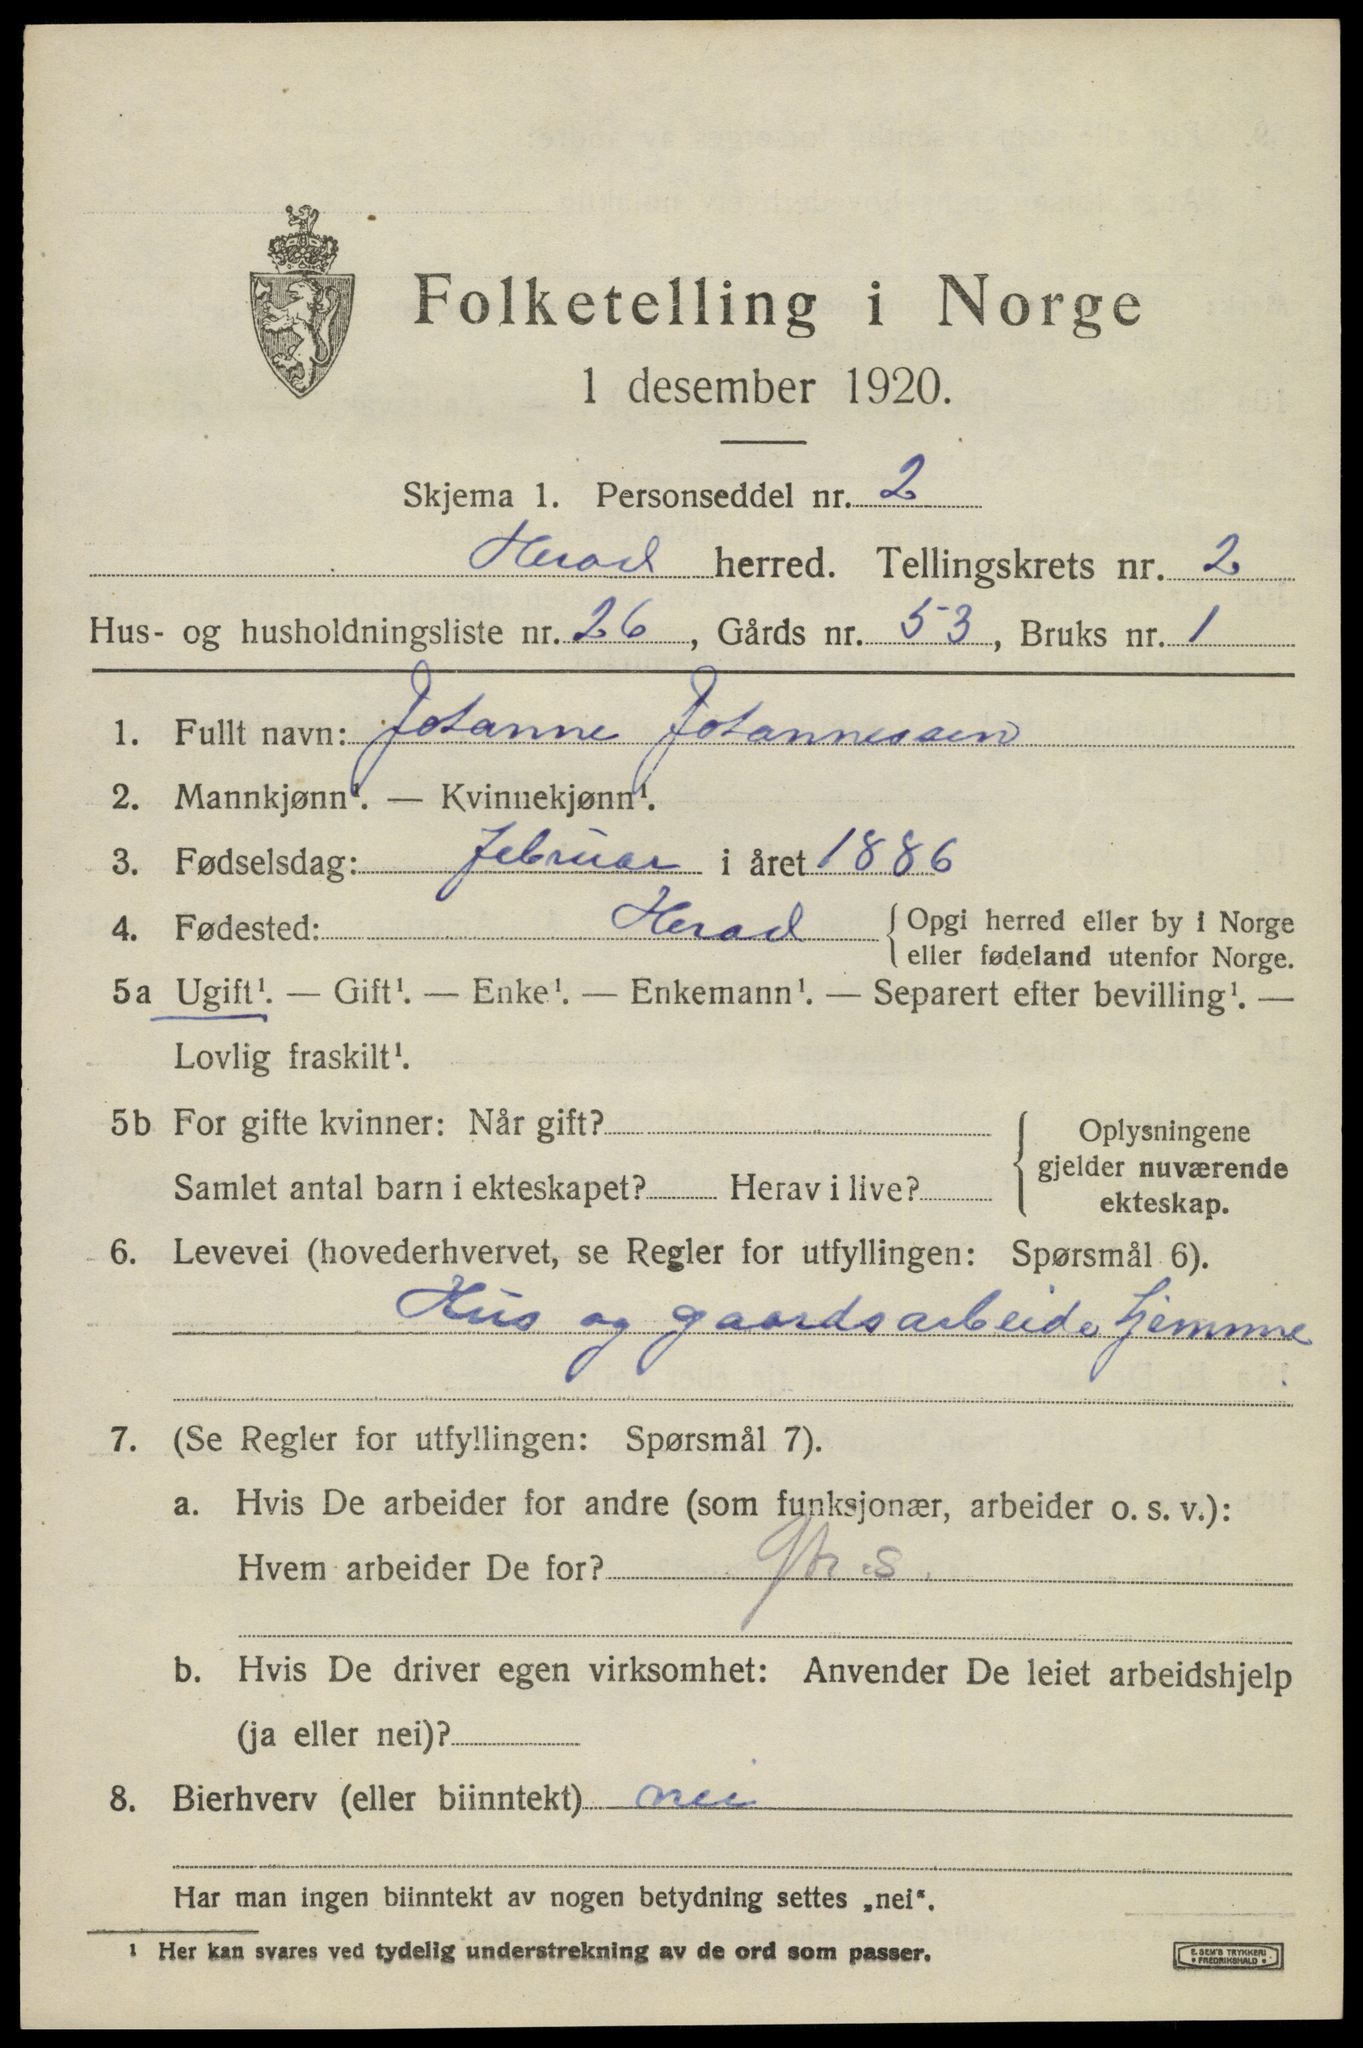 Folketelling i Norge
1 desember 1920.
Skjema 1. Personseddel nr. 2
Herad herred. Tellingskrets nr. 2
Hus- og husholdningsliste nr. 26, Gårds nr. 53, Bruks nr. 1
1. Fullt navn: Johanne Johannessen
2. Mannkjønn¹. — Kvinnekjønn¹.
3. Fødselsdag: februar i året 1886
4. Fødested: Herad {Opgi herred eller by i Norge
eller fødeland utenfor Norge.
5a Ugift¹. — Gift¹. — Enke¹. — Enkemann¹. — Separert efter bevilling¹. —
Lovlig fraskilt¹.
5b For gifte kvinner: Når gift?
Samlet antal barn i ekteskapet? Herav i live?
Oplysningene
gjelder nuværende
ekteskap.
6. Levevei (hovederhvervet, se Regler for utfyllingen: Spørsmål 6).
Hus og gaardsarbeide hjemme
7. (Se Regler for utfyllingen: Spørsmål 7).
a. Hvis De arbeider for andre (som funksjonær, arbeider o. s. v.):
Hvem arbeider De for?
b. Hvis De driver egen virksomhet: Anvender De leiet arbeidshjelp
(ja eller nei)?
8. Bierhverv (eller biinntekt) nei
Har man ingen biinntekt av nogen betydning settes „nei“.
1 Her kan svares ved tydelig understrekning av de ord som passer.
E. SEM'S TRYKKERI
FREDRIKSHALD